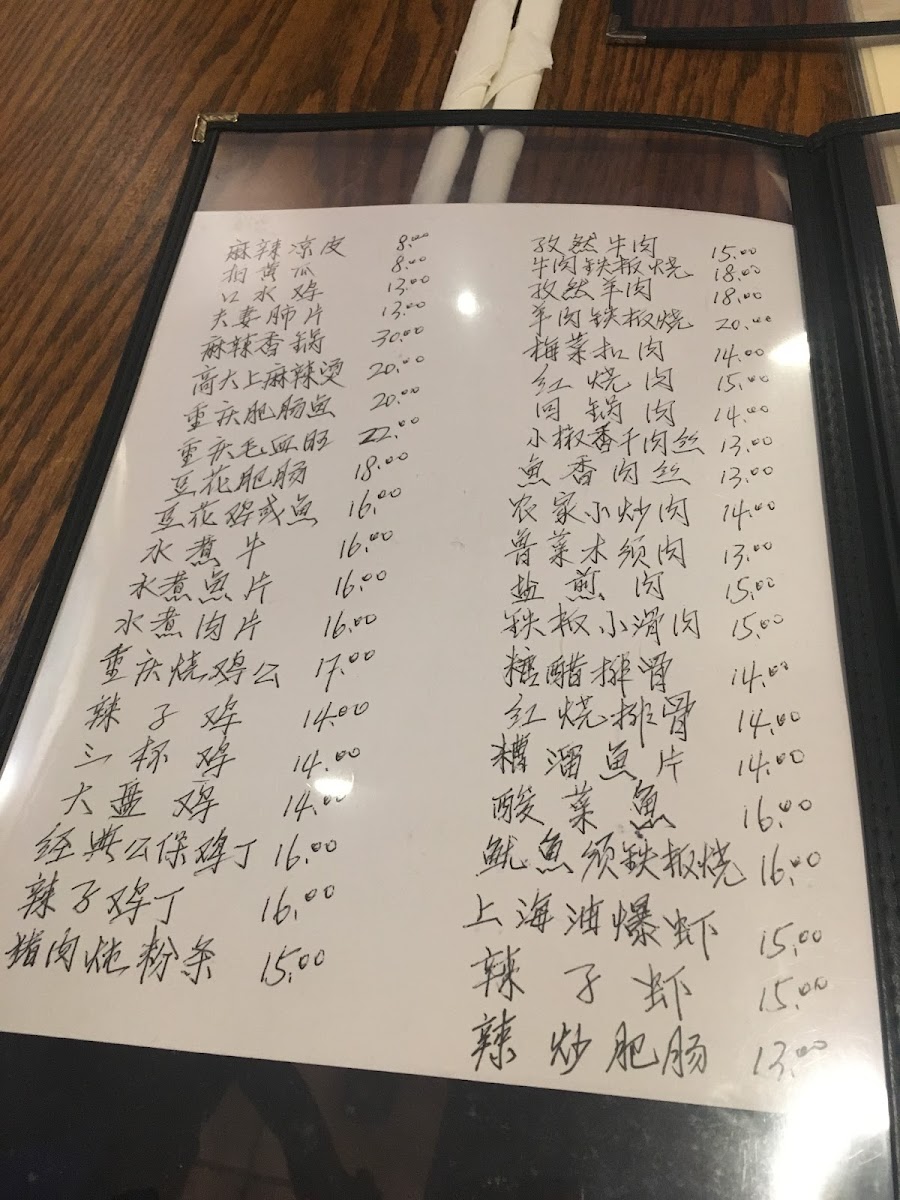 麻辣凉皮 8.00
拍黄瓜 8.00
口水鸡 13.00
夫妻肺片 13.00
麻辣香锅 30.00
高大上麻辣烫 20.00
重庆肥肠鱼 20.00
重庆毛血旺 22.00
豆花肥肠 18.00
豆花鸡或鱼 16.00
水煮牛 16.00
水煮鱼片 16.00
水煮肉片 16.00
重庆烧鸡公 17.00
辣子鸡 14.00
三杯鸡 14.00
大盘鸡 14.00
经典公保鸡丁 16.00
辣子鸡丁 16.00
猪肉炖粉条 15.00
孜然牛肉 15.00
牛肉铁板烧 18.00
孜然羊肉 18.00
羊肉铁板烧 20.00
梅菜扣肉 14.00
红烧肉 15.00
回锅肉 14.00
小椒香干肉丝 13.00
魚香肉丝 13.00
农家小炒肉 14.00
鲁菜木须肉 13.00
盐煎肉 15.00
铁板小滑肉 15.00
糖醋排骨 14.00
红烧排骨 14.00
糟溜魚片 14.00
酸菜魚 16.00
鱿魚须铁板烧 16.00
上海油爆虾 15.00
辣子虾 15.00
辣炒肥肠 13.00